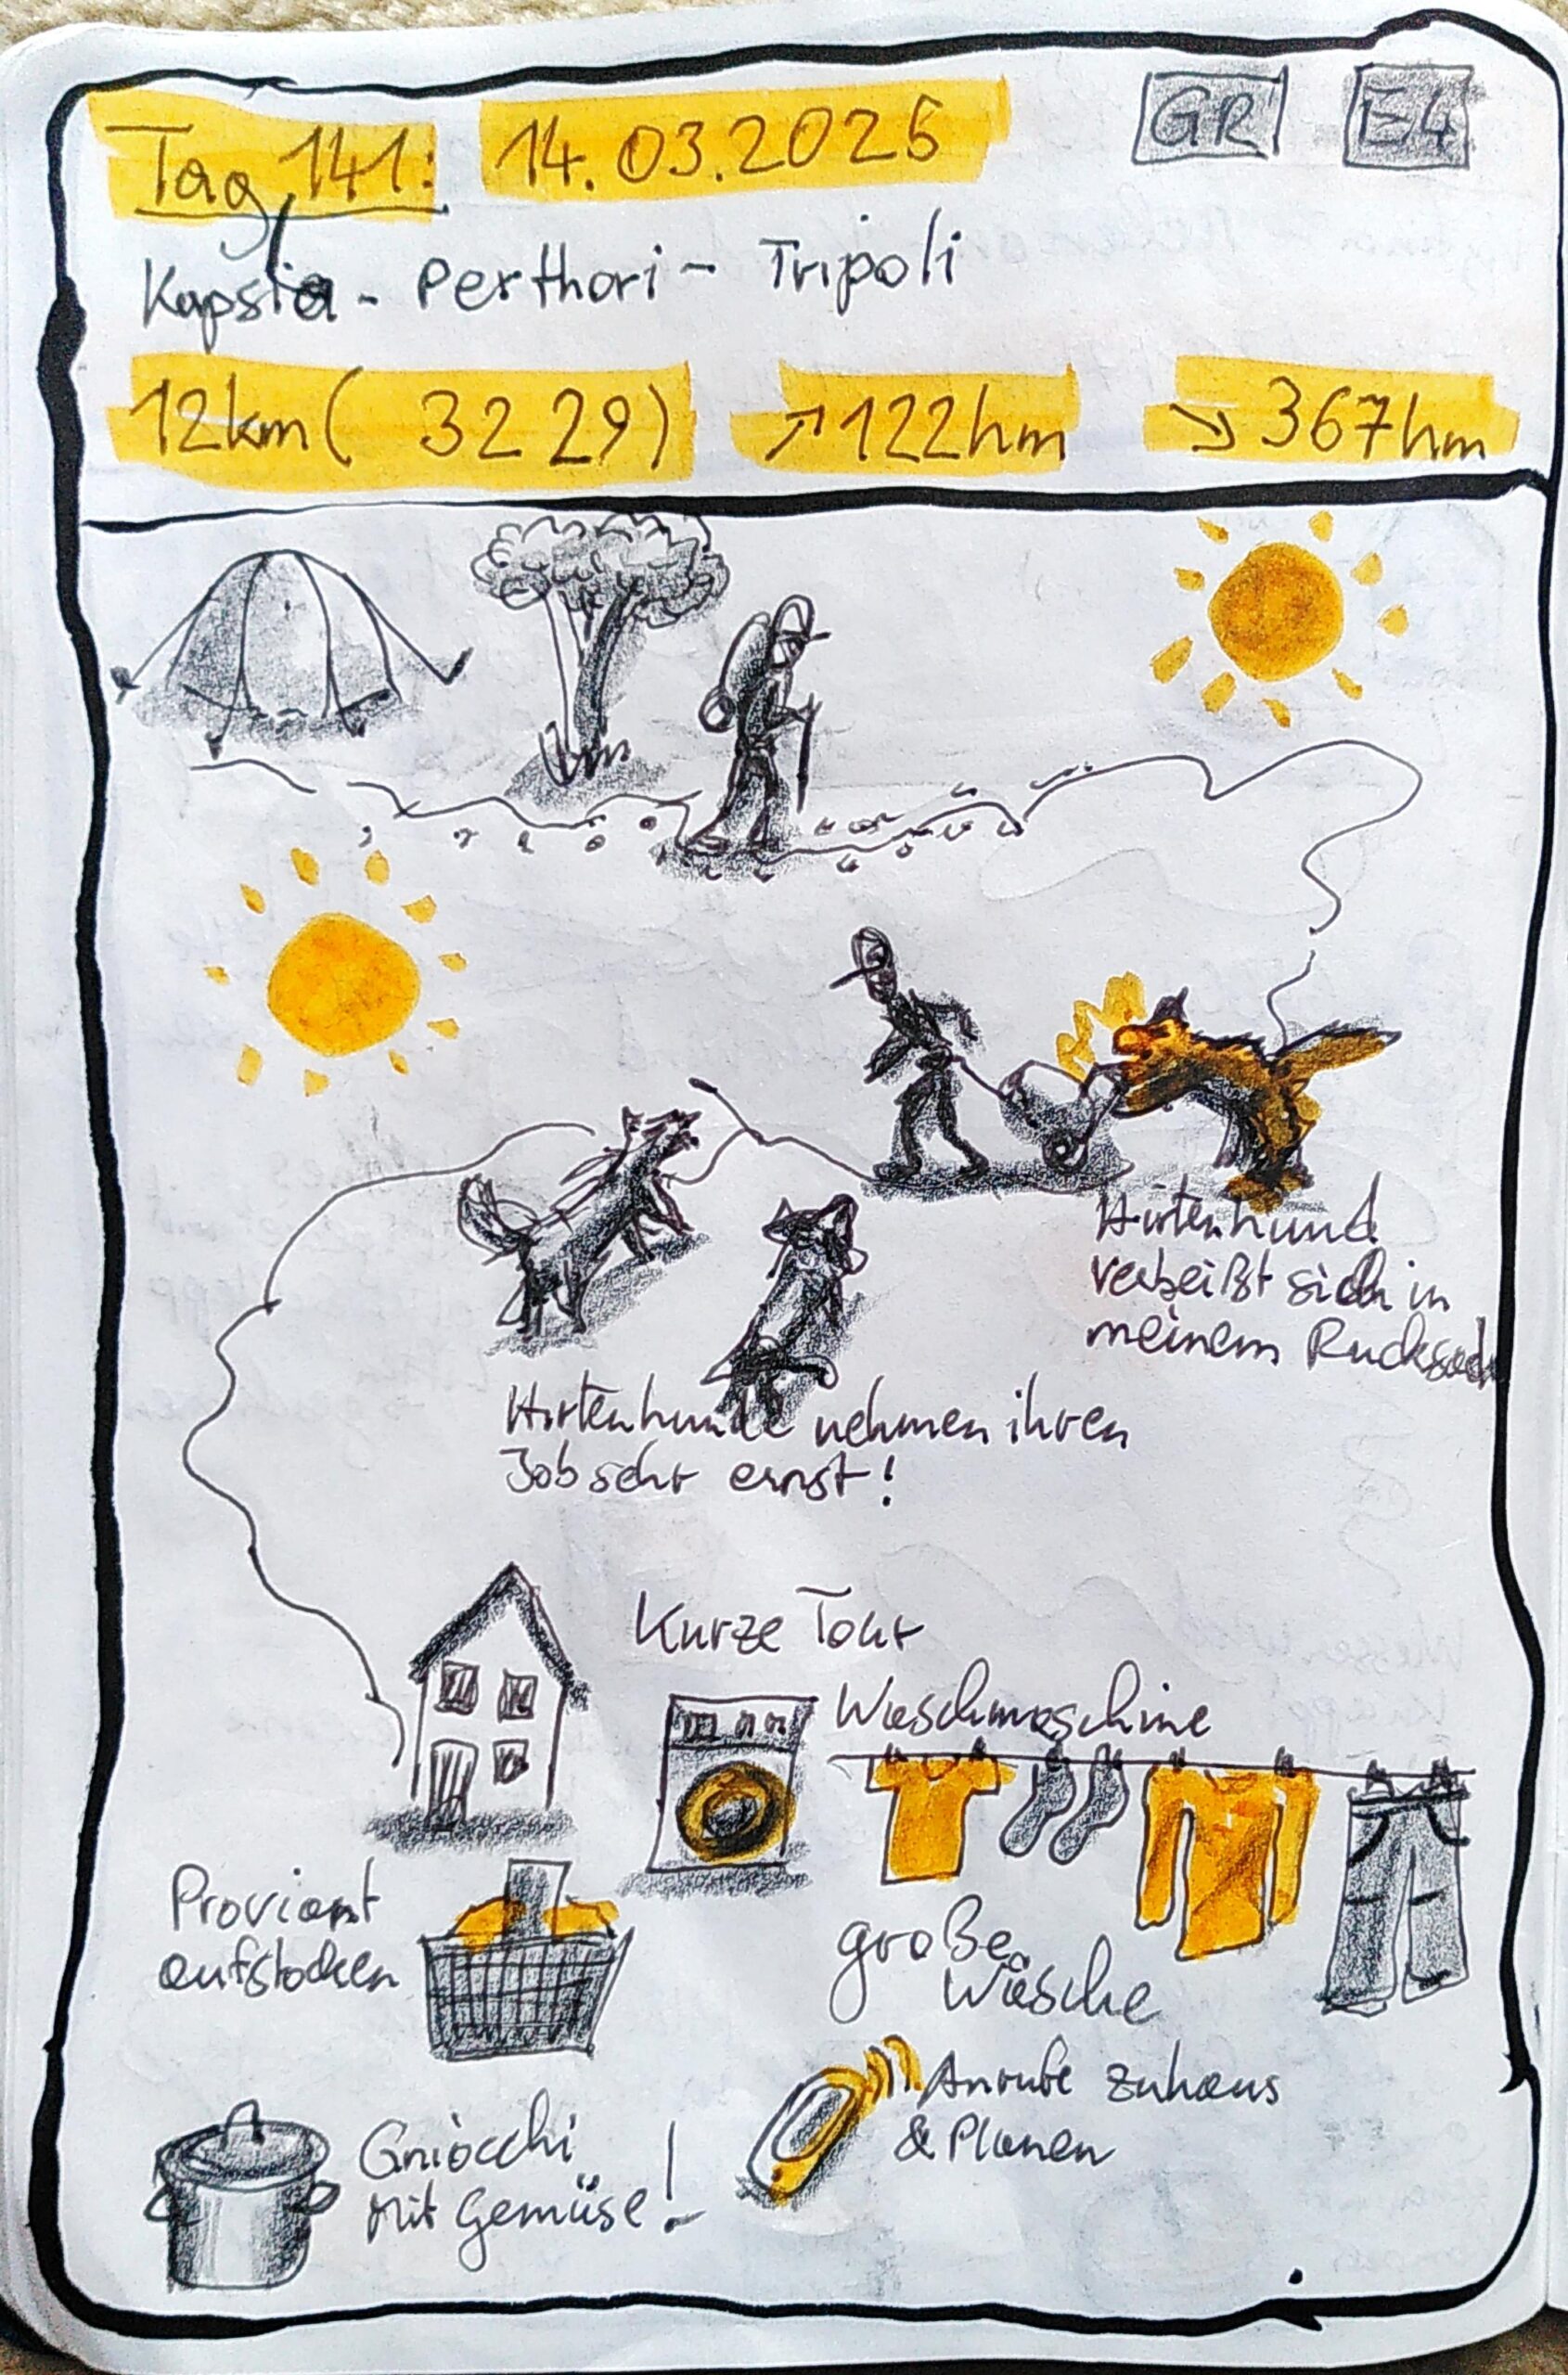 Tag 141: 14.03.2025 GR E4
Kapsia - Perthori - Tripoli
12km ( 3229) ↗122hm ↘367hm
Hirtenhund
verbeißt sich in
meinem Rucksack
Hirtenhunde nehmen ihren
Job sehr ernst!
Kurze Tour
Waschmaschine
Proviant
aufstocken
große
Wäsche
Anrufe zuhaus
& Planen
Gniocchi
Mit Gemüse!